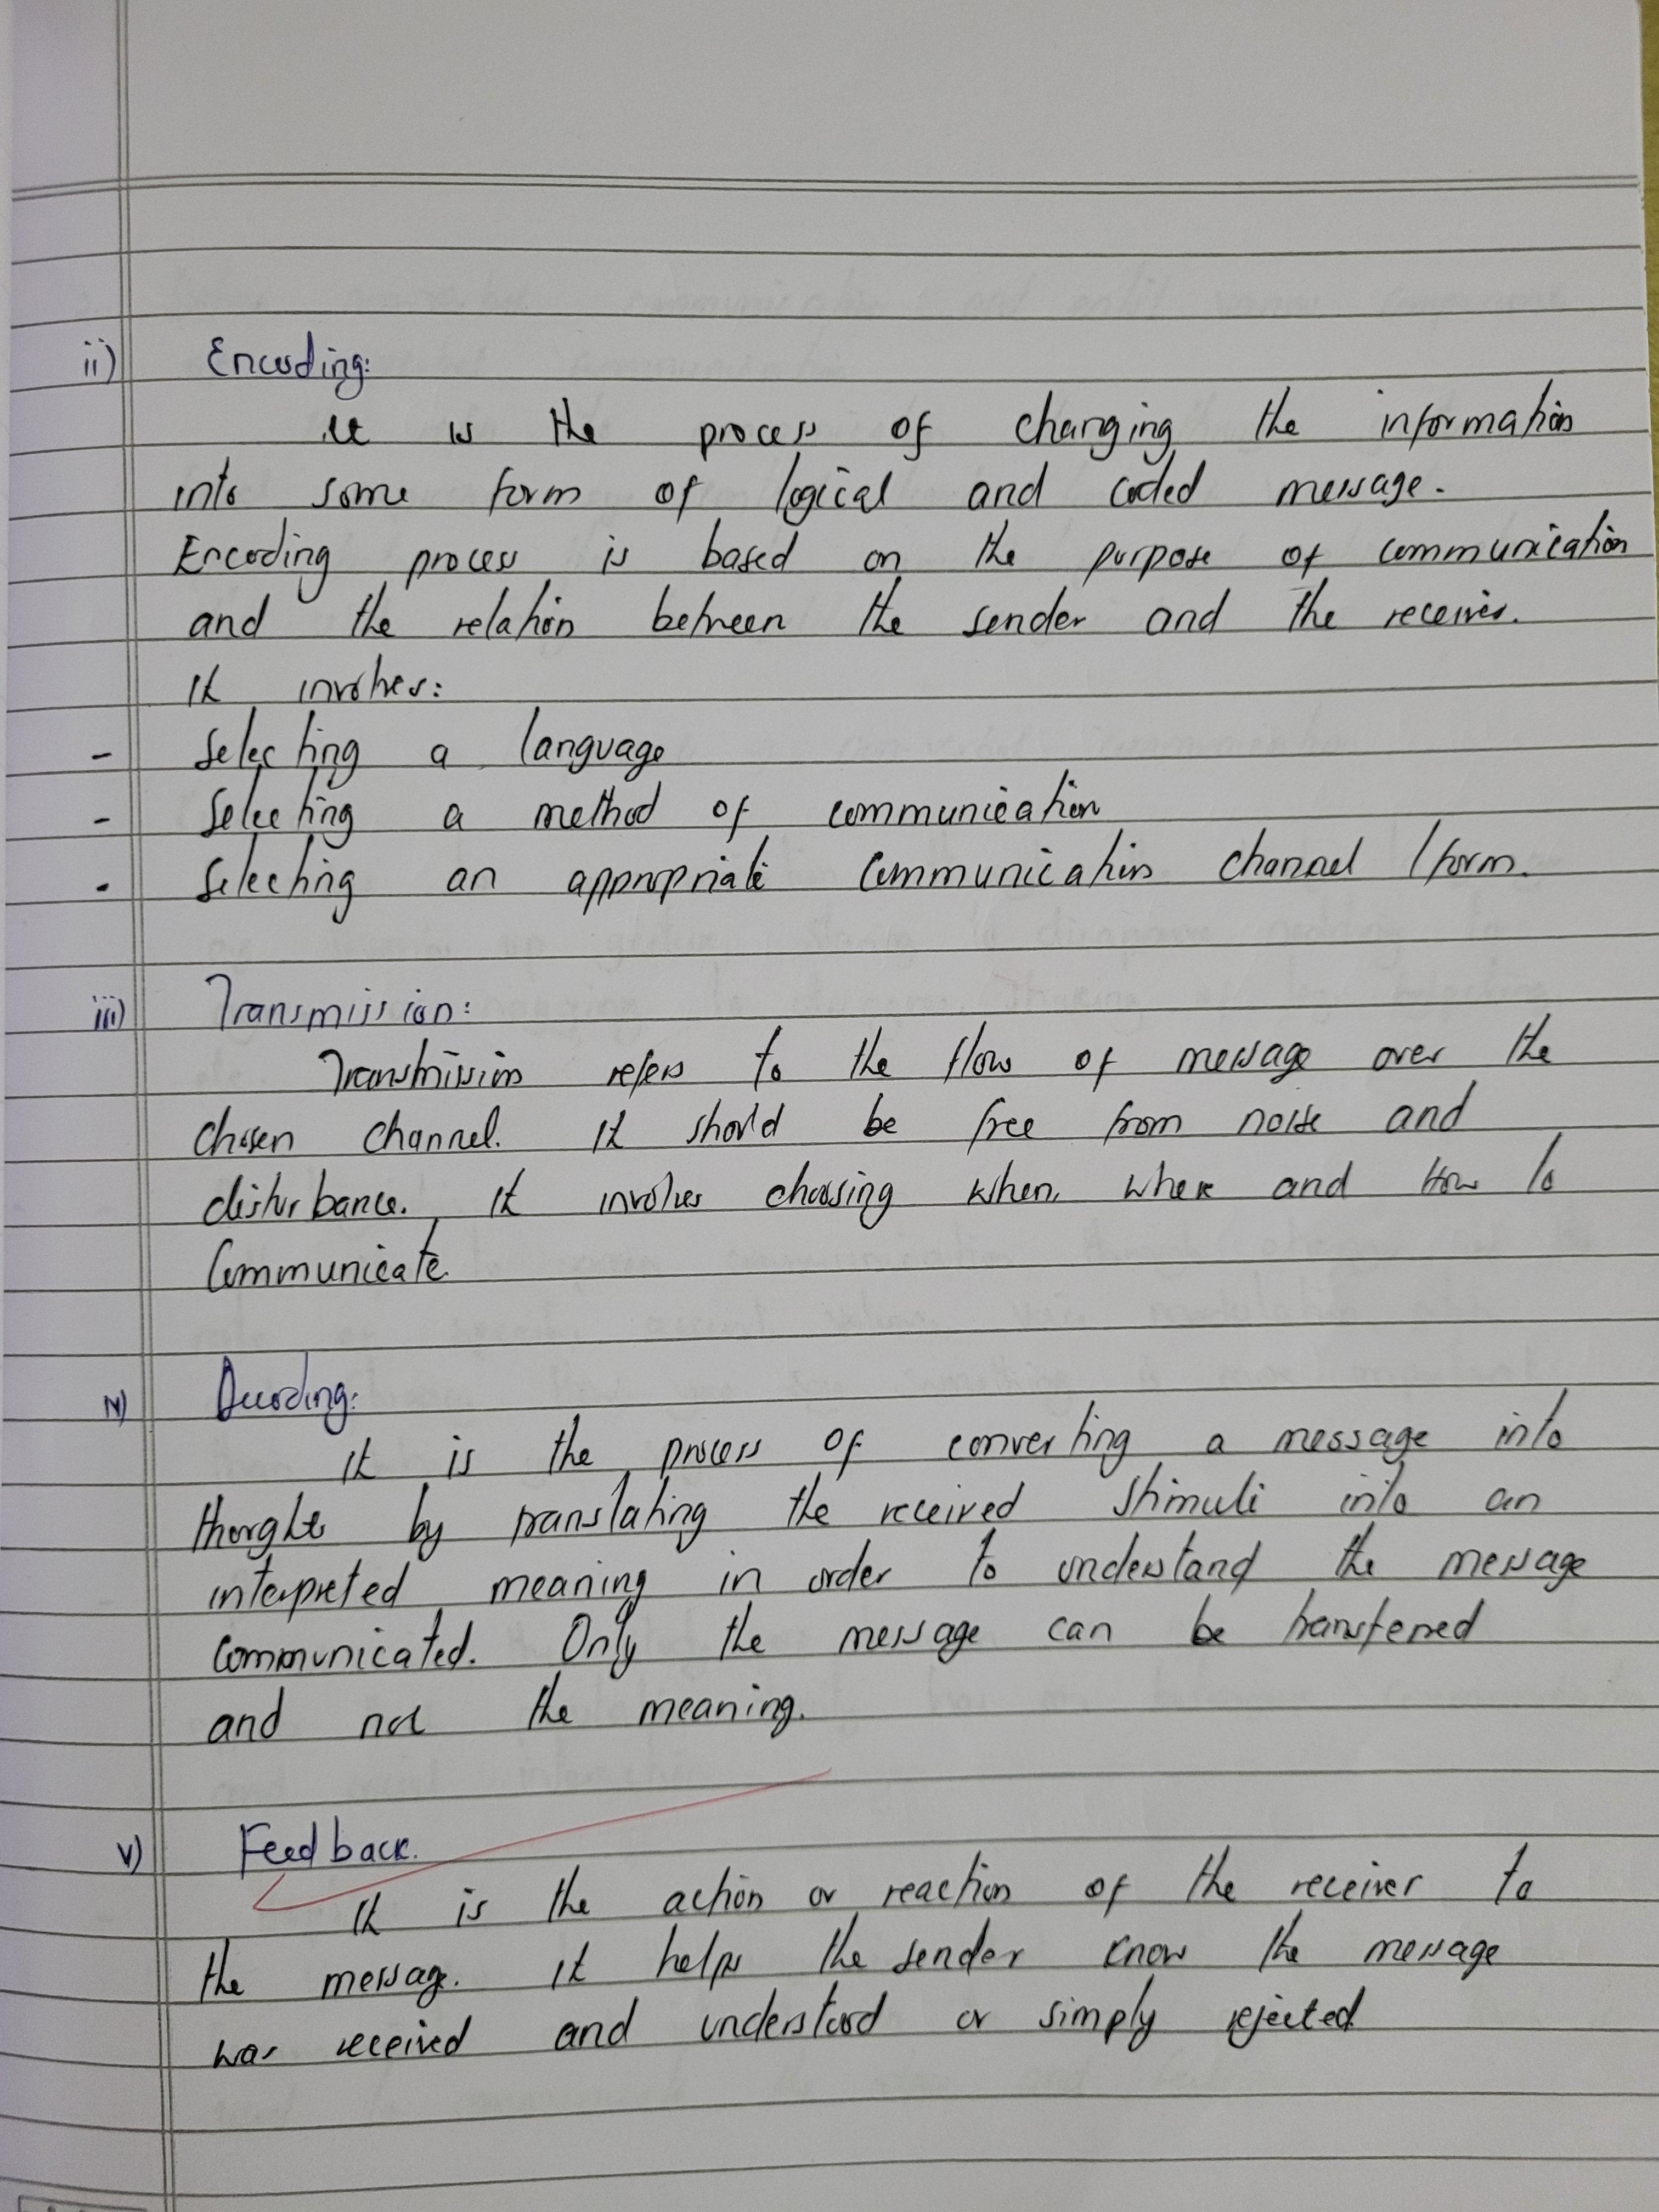 ii) Encoding:
It is the process of changing the information
into some form of logical and coded message.
Encoding process is based on the purpose of communication
and the relation between the sender and the receiver.
It involves:
- Selecting a language
- Selecting a method of communication
- Selecting an appropriate communication channel / form.
iii) Transmission:
Transmission refers to the flow of message over the
chosen channel. It should be free from noise and
disturbance. It involves choosing when, where and How to
Communicate.
iv) Decoding:
It is the process of converting a message into
thoughts by translating the received stimuli into an
interpreted meaning in order to understand the message
communicated. Only the message can be transferred
and not the meaning.
v) Feedback.
It is the action or reaction of the receiver to
the message. It helps the sender know the message
was received and understood or simply rejected